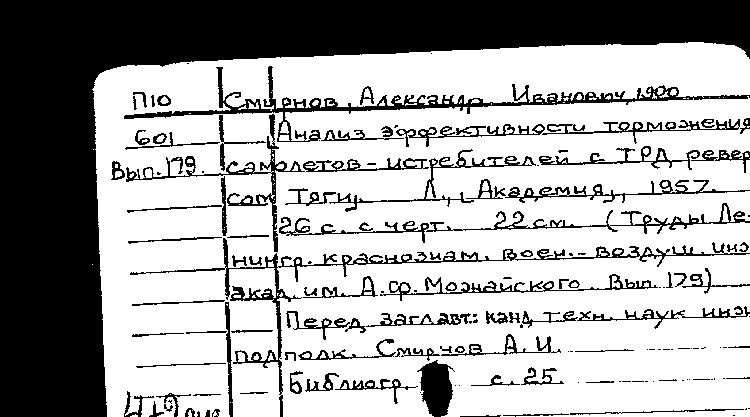 П10 Смирнов, Александр Иванович, 1900
601 Анализ эффективности торможения
Вып. 179. самолетов-истребителей с ТРД ревер
сом тяги. Л., Академия, 1957.
26 с. с черт. 22 см. (Труды Ле-
нингр. краснознам. воен.-воздуш. инж
акад. им. А.Ф. Можайского. Вып. 179)
Перед заглавт.: канд техн. наук инж
подполк. Смирнов А. И.
Библиогр. с. 25.